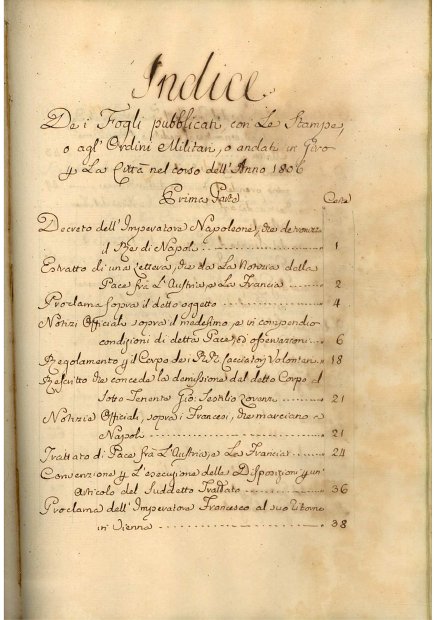 Indice
De i Fogli pubblicati con Le Stampe,
o agl' Ordini Militari, o andati in Giro
y La Città nel corso dell' Anno 1806
Prima Parte
Carte
Decreto dell' Imperatore Napoleone, che detronizza
il Re di Napoli 1
Estratto di una Lettera, che dà La Notizia della
Pace frà L'Austria, e La Francia 2
Proclama sopra il detto oggetto 4
Notizi Officiali sopra il medesimo, e vi compendio
condizioni di detta Pace, ed osservazioni 6
Regolamento y il Corpo de i RR. Cacciatori Volontari 18
Rescritto che concede la demissione del detto Corpo al
Sotto Tenente Gio: 21
Notizie Officiali, sopra i Francesi, che marciano a
Napoli 21
Trattato di Pace frà L'Austria, e La Francia 24
Convenzione y L'esecuzione delle Disposizioni y un'
Articolo del Suddetto Trattato 36
Proclama dell' Imperatore Francesco al suo Ritorno
in Vienna 38